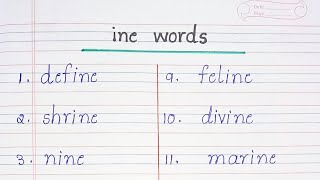 ine words
1. define
2. shrine
3. nine
9. feline
10. divine
11. marine